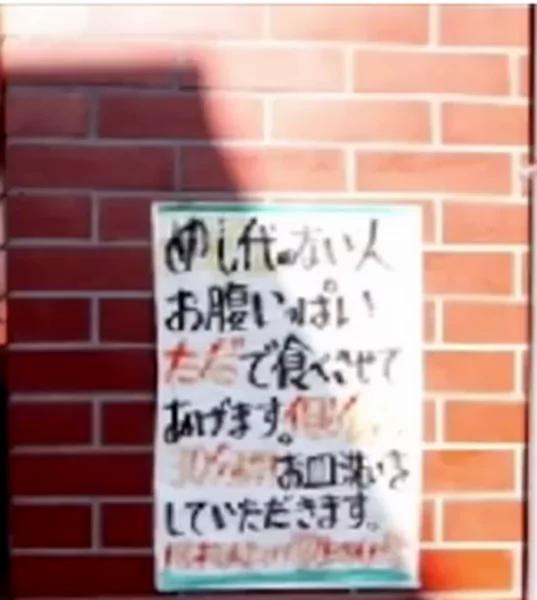 めし代のない人
お腹いっぱい
ただで食べさせて
あげます。但し
30分間お皿洗いを
していただきます。